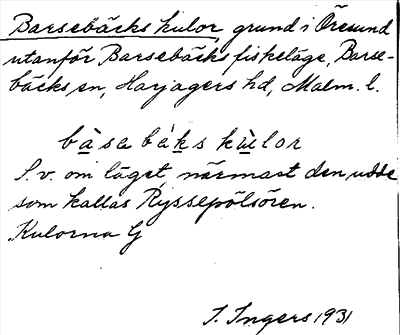 Barsebäcks kulor, grund i Öresund
utanför Barsebäcks fiskeläge, Barse-
bäcks sn, Harjagers hd, Malm. l.
bàsabàks kùlor
S.v. om läget närmast den udde
som kallas Ryssepölsören.
Kulorna G
I. Ingers 1931